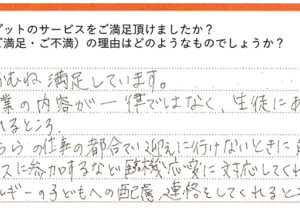 ゲットのサービスをご満足頂けましたか？
ご満足・ご不満）の理由はどのようなものでしょうか？
おむね満足しています。
業の内容が一律ではなく、生徒にあ
れるところ
らの仕事の都合で迎えに行けないときに
スに参加するなど臨機応変に対応してくれ
ルギーの子どもへの配慮、連絡をしてくれると